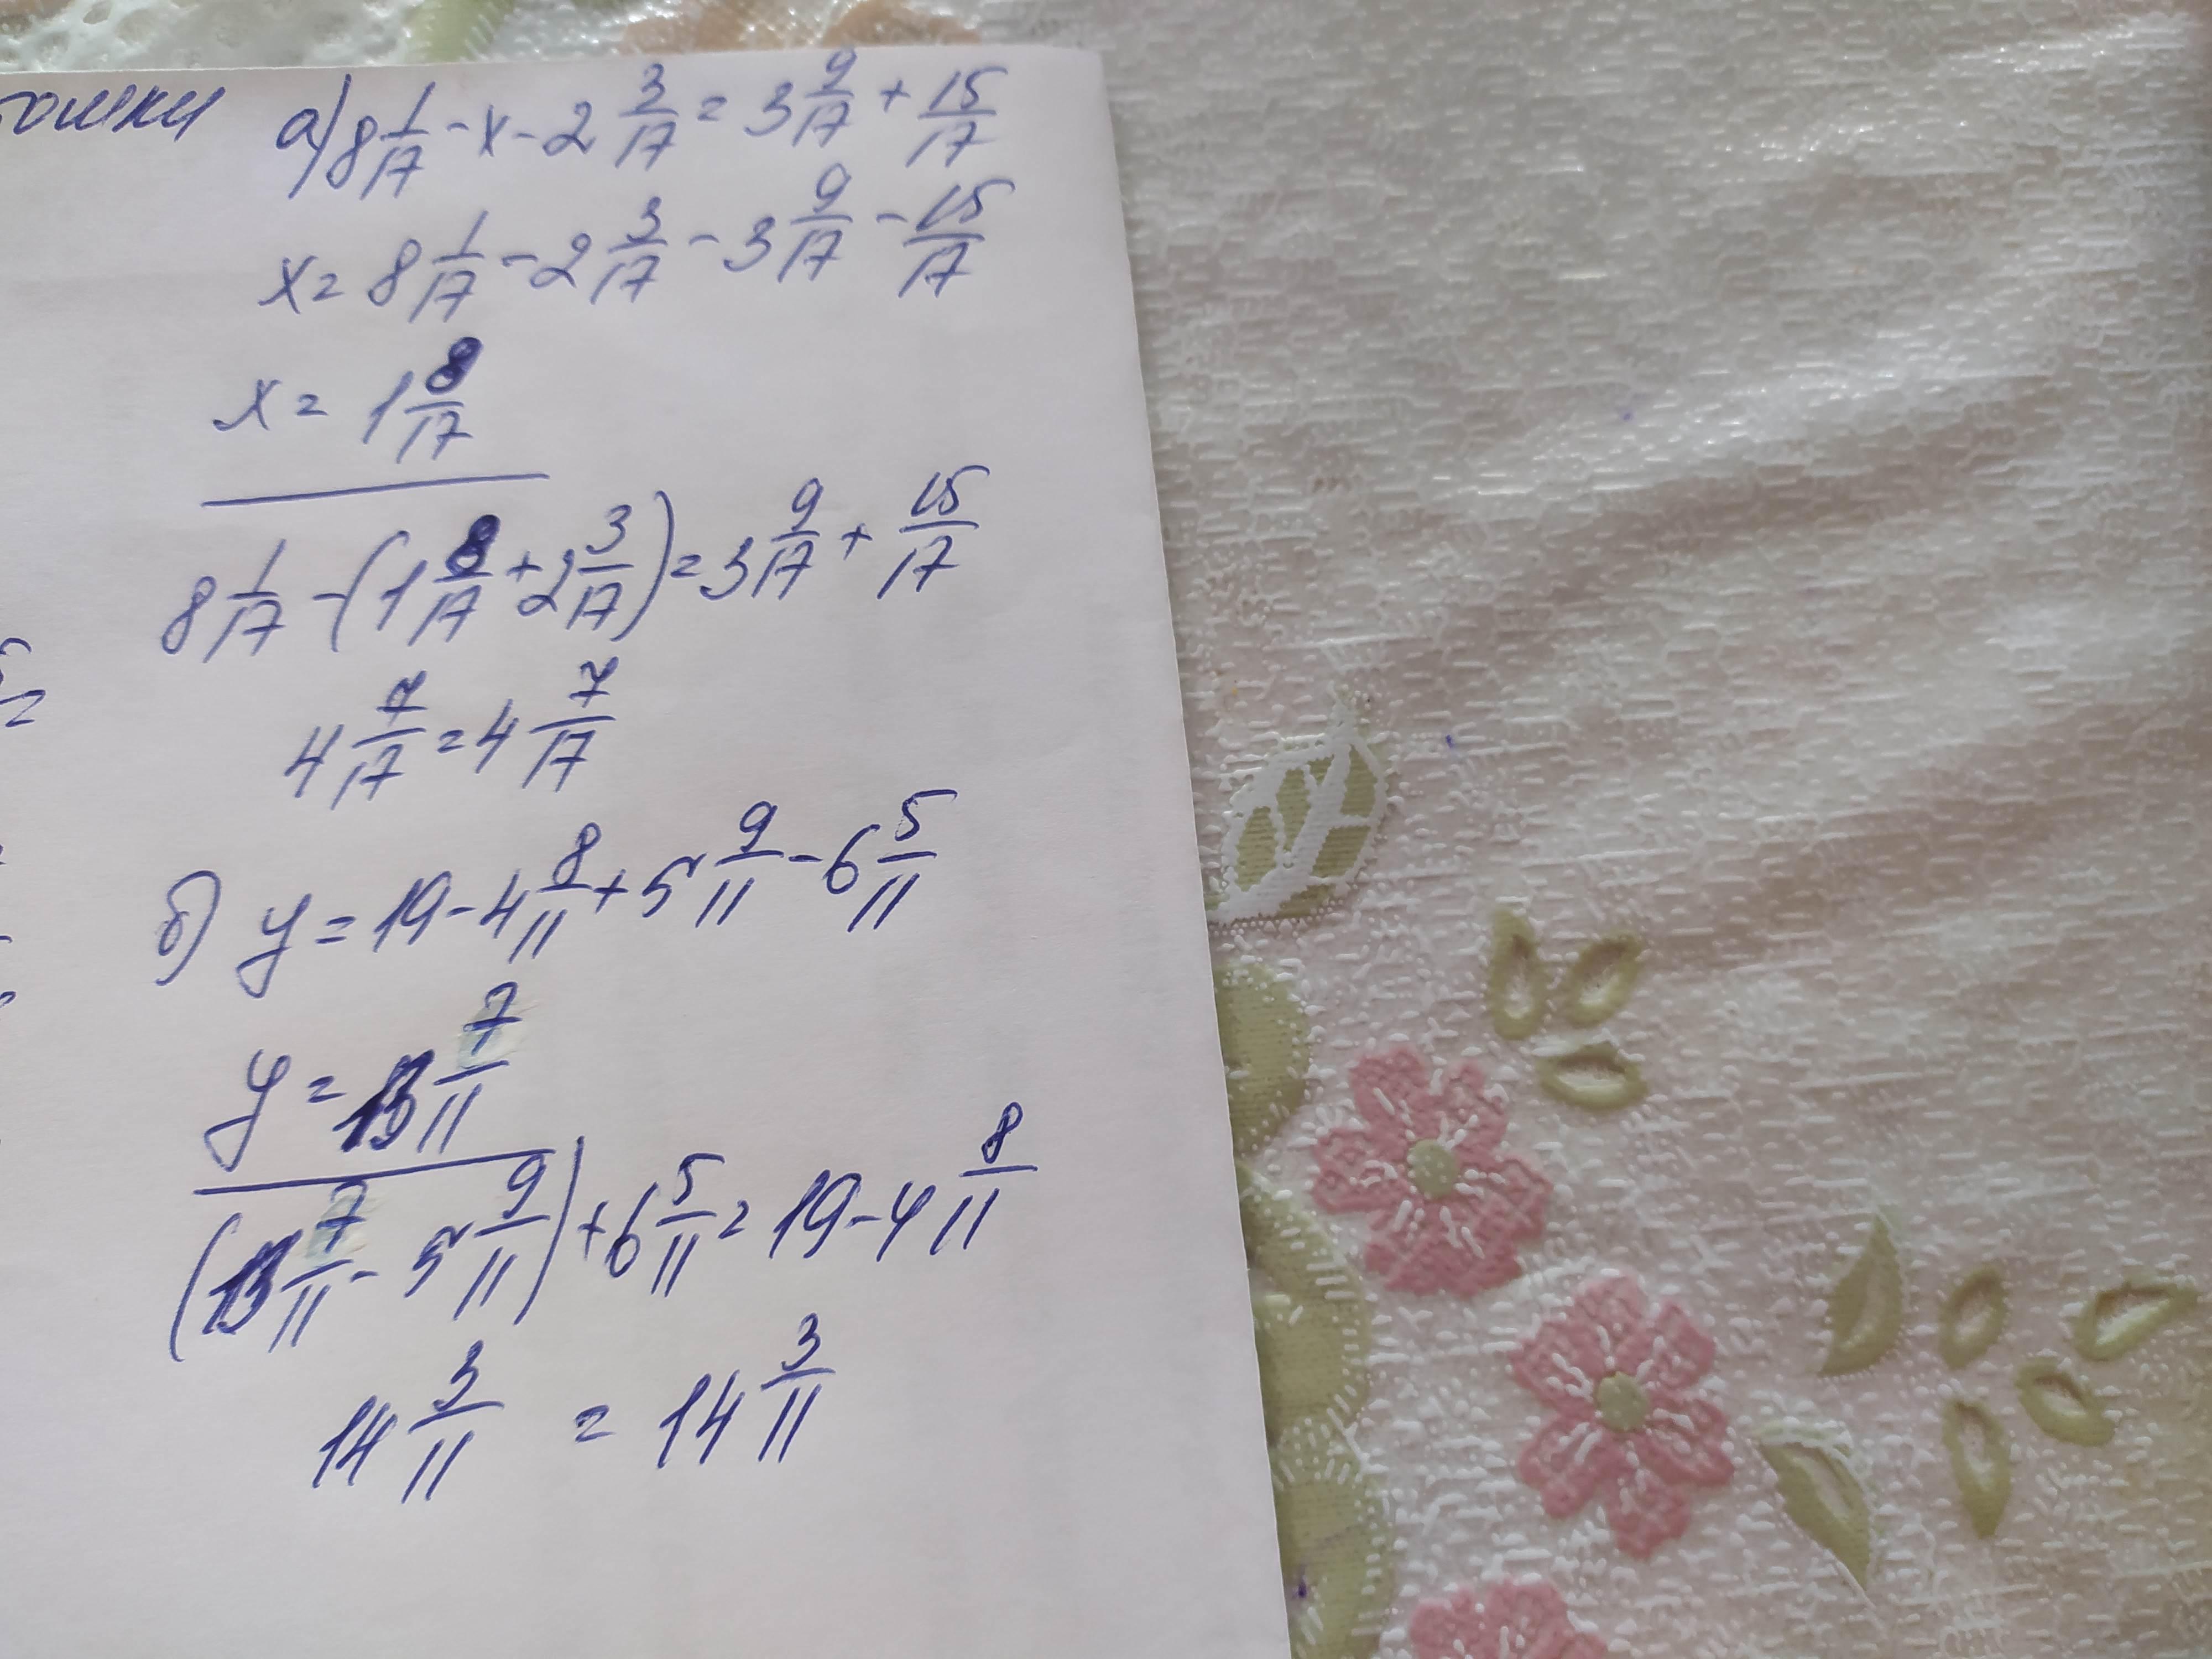 а) 8 1/17 - x - 2 3/17 = 3 9/17 + 15/17
x = 8 1/17 - 2 3/17 - 3 9/17 - 15/17
x = 1 8/17
8 1/17 - (1 8/17 + 2 3/17) = 3 9/17 + 15/17
4 7/17 = 4 7/17
б) y = 19 - 4 8/11 + 5 9/11 - 6 5/11
y = 13 7/11
(13 7/11 - 5 9/11) + 6 5/11 = 19 - 4 8/11
14 3/11 = 14 3/11